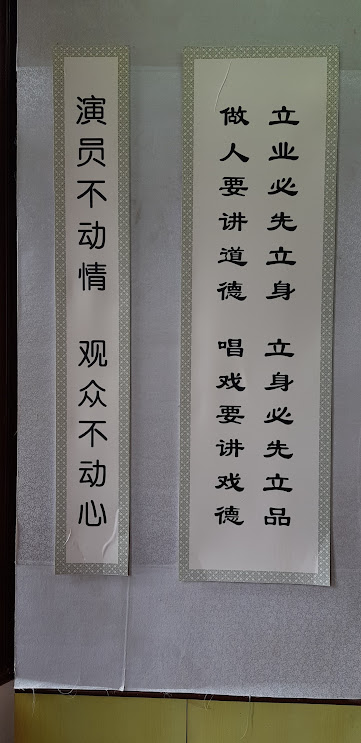 立业必先立身 立身必先立品
做人要讲道德 唱戏要讲戏德
演员不动情 观众不动心